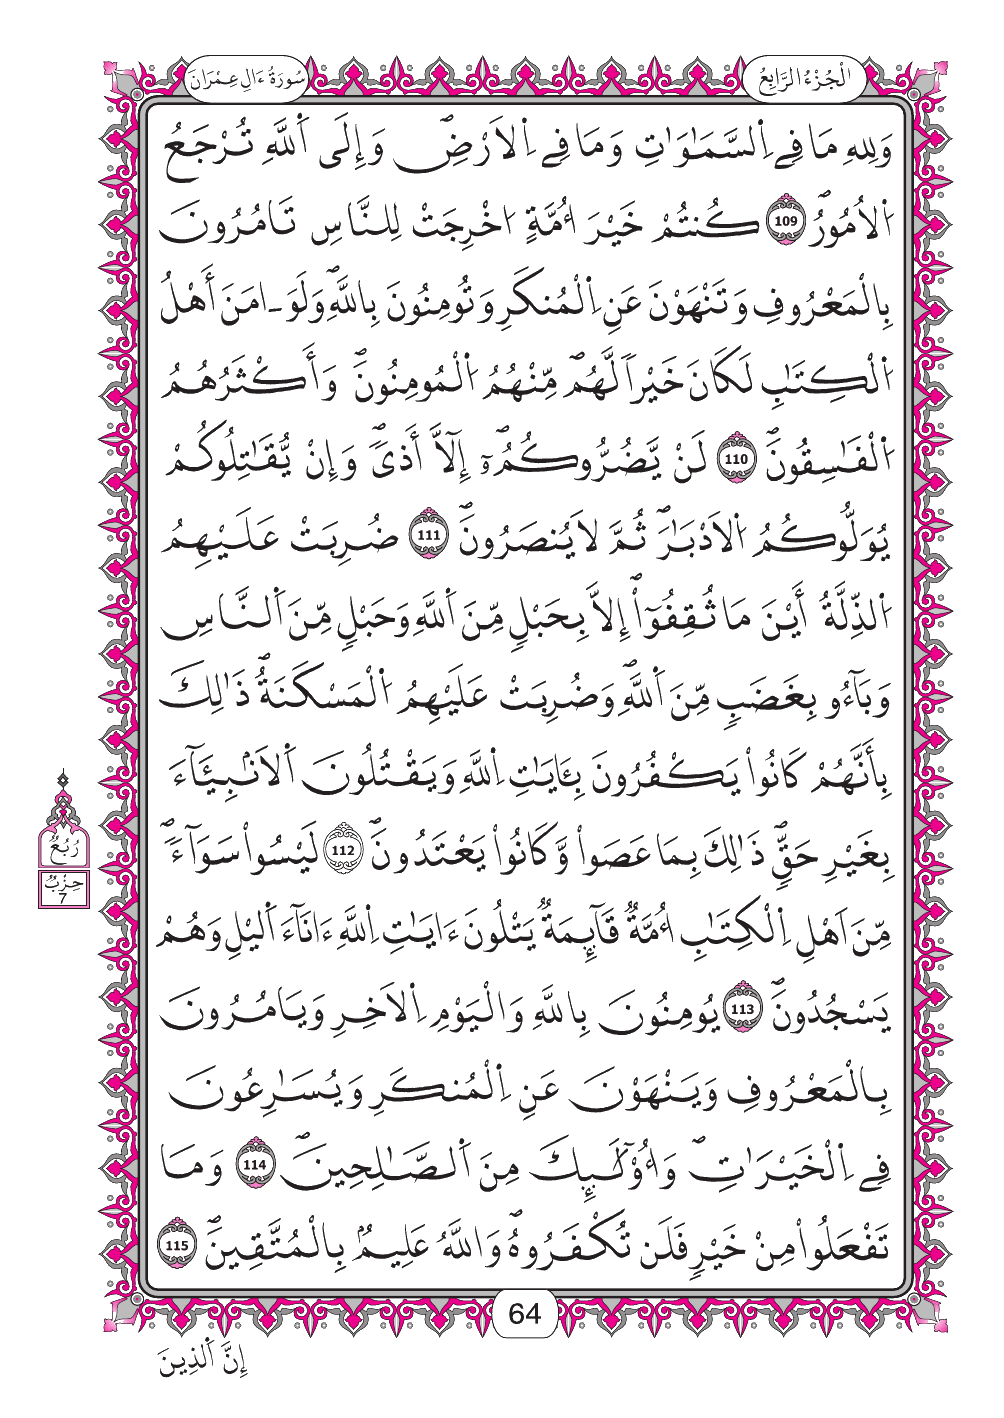 اَ۬لْجُزْءُ اُ۬لرَّابِعُ
سُورَةُ ءَالِ عِمْرَانَ
وَلِلهِ مَا فِے اِ۬لسَّمَٰوَٰتِ وَمَا فِے اِ۬لَارْضِۖ وَإِلَى اَ۬للَّهِ تُرْجَعُ
اُ۬لُامُورُۖ 109 كُنتُمْ خَيْرَ أُمَّةٍ ا۟خْرِجَتْ لِلنَّاسِ تَامُرُونَ
بِالْمَعْرُوفِ وَتَنْهَوْنَ عَنِ اِ۬لْمُنكَرِ وَتُومِنُونَ بِاللَّهِۖ وَلَوَ ـ امَنَ أَهْلُ
اُ۬لْكِتَٰبِ لَكَانَ خَيْراٗ لَّهُمۖ مِّنْهُمُ اُ۬لْمُومِنُونَۖ وَأَكْثَرُهُمُ
اُ۬لْفَٰسِقُونَۖ 110 لَنْ يَّضُرُّوكُمُۥٓۖ إِلَّآ أَذىٗۖ وَإِنْ يُّقَٰتِلُوكُمْ
يُوَلُّوكُمُ اُ۬لَادْبَٰرَۖ ثُمَّ لَا يُنصَرُونَۖ 111 ضُرِبَتْ عَلَيْهِمُ
اُ۬لذِّلَّةُ أَيْنَ مَا ثُقِفُوٓاْۖ إِلَّا بِحَبْلٖ مِّنَ اَ۬للَّهِ وَحَبْلٖ مِّنَ اَ۬لنَّاسِ
وَبَآءُو بِغَضَبٖ مِّنَ اَ۬للَّهِۖ وَضُرِبَتْ عَلَيْهِمُ اُ۬لْمَسْكَنَةُۖ ذَٰلِكَ
بِأَنَّهُمْ كَانُواْ يَكْفُرُونَ بِـَٔايَٰتِ اِ۬للَّهِ وَيَقْتُلُونَ اَ۬لَانۢبِيَآءَ
بِغَيْرِ حَقّٖۖ ذَٰلِكَ بِمَا عَصَواْ وَّكَانُواْ يَعْتَدُونَۖ 112 لَيْسُواْ سَوَآءٗۖ
مِّنَ اَهْلِ اِ۬لْكِتَٰبِ أُمَّةٞ قَآئِمَةٞ يَتْلُونَ ءَايَٰتِ اِ۬للَّهِ ءَانَآءَ اَ۬ليْلِ وَهُمْ
يَسْجُدُونَۖ 113 يُومِنُونَ بِاللَّهِ وَالْيَوْمِ اِ۬لَاخِرِ وَيَامُرُونَ
بِالْمَعْرُوفِ وَيَنْهَوْنَ عَنِ اِ۬لْمُنكَرِ وَيُسَٰرِعُونَ
فِے اِ۬لْخَيْرَٰتِۖ وَأُوْلَٰٓئِكَ مِنَ اَ۬لصَّٰلِحِينَۖ 114 وَمَا
تَفْعَلُواْ مِنْ خَيْرٖ فَلَن تُكْفَرُوهُۖ وَاللَّهُ عَلِيمُۢ بِالْمُتَّقِينَۖ 115
رُبُعُ
حِزْبٌ
7
64
إِنَّ اَ۬لذِينَ